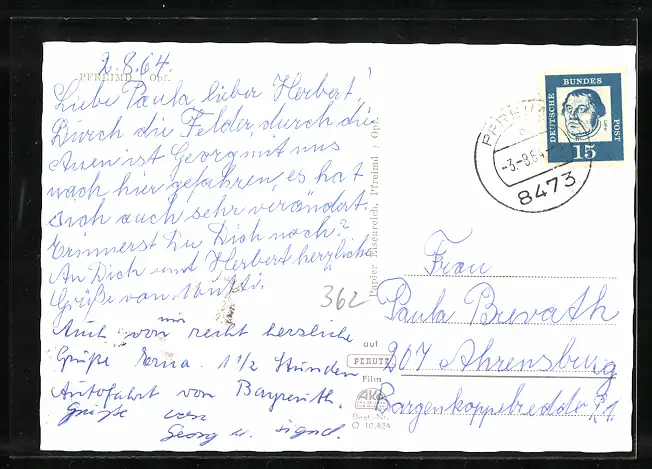 2.8.64.
PFREIMD Opf.
Liebe Paula lieber Herbert!
Durch die Felder durch die
Auen ist Georg mit uns
nach hier gefahren, es hat
sich auch sehr verändert.
Erinnerst Du Dich noch?
An Dich und Herbert herzliche
Grüße von Mutti.
Auch von mir recht herzliche
Grüße Erna. 1 1/2 Stunden
Autofahrt von Bayreuth.
Grüße von
Georg u.
Papier Eisenreich, Pfreimd / Opf.
362
auf
PERUTZ
Film
AKE
Best-Nr.
O 10.424
DEUTSCHE
BUNDES
POST
15
PFREIMD
-3.-8.64
8473
Frau
Paula
207 Ahrensburg